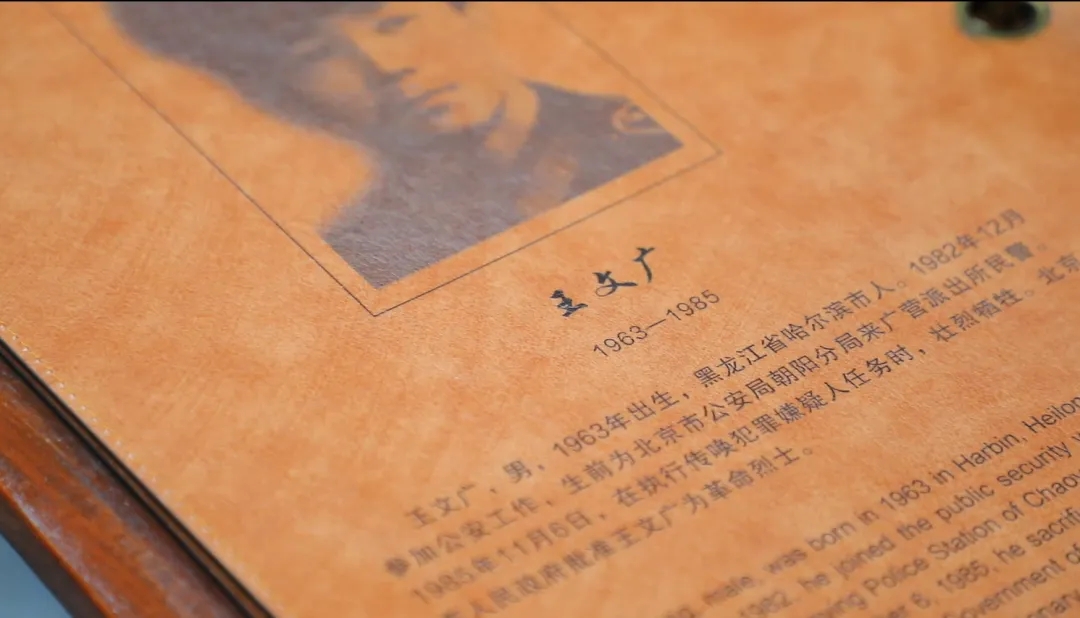 王文广
1963—1985
王文广，男，1963年出生，黑龙江省哈尔滨市人。1982年12月
参加公安工作，生前为北京市公安局朝阳分局来广营派出所民警。
1985年11月6日，在执行传唤犯罪嫌疑人任务时，壮烈牺牲。北京
市人民政府批准王文广为革命烈士。
male, was born in 1963 in Harbin, Heilon
1982, he joined the public security
Police Station of Chaoy
6, 1985, he sacrifi
Government of